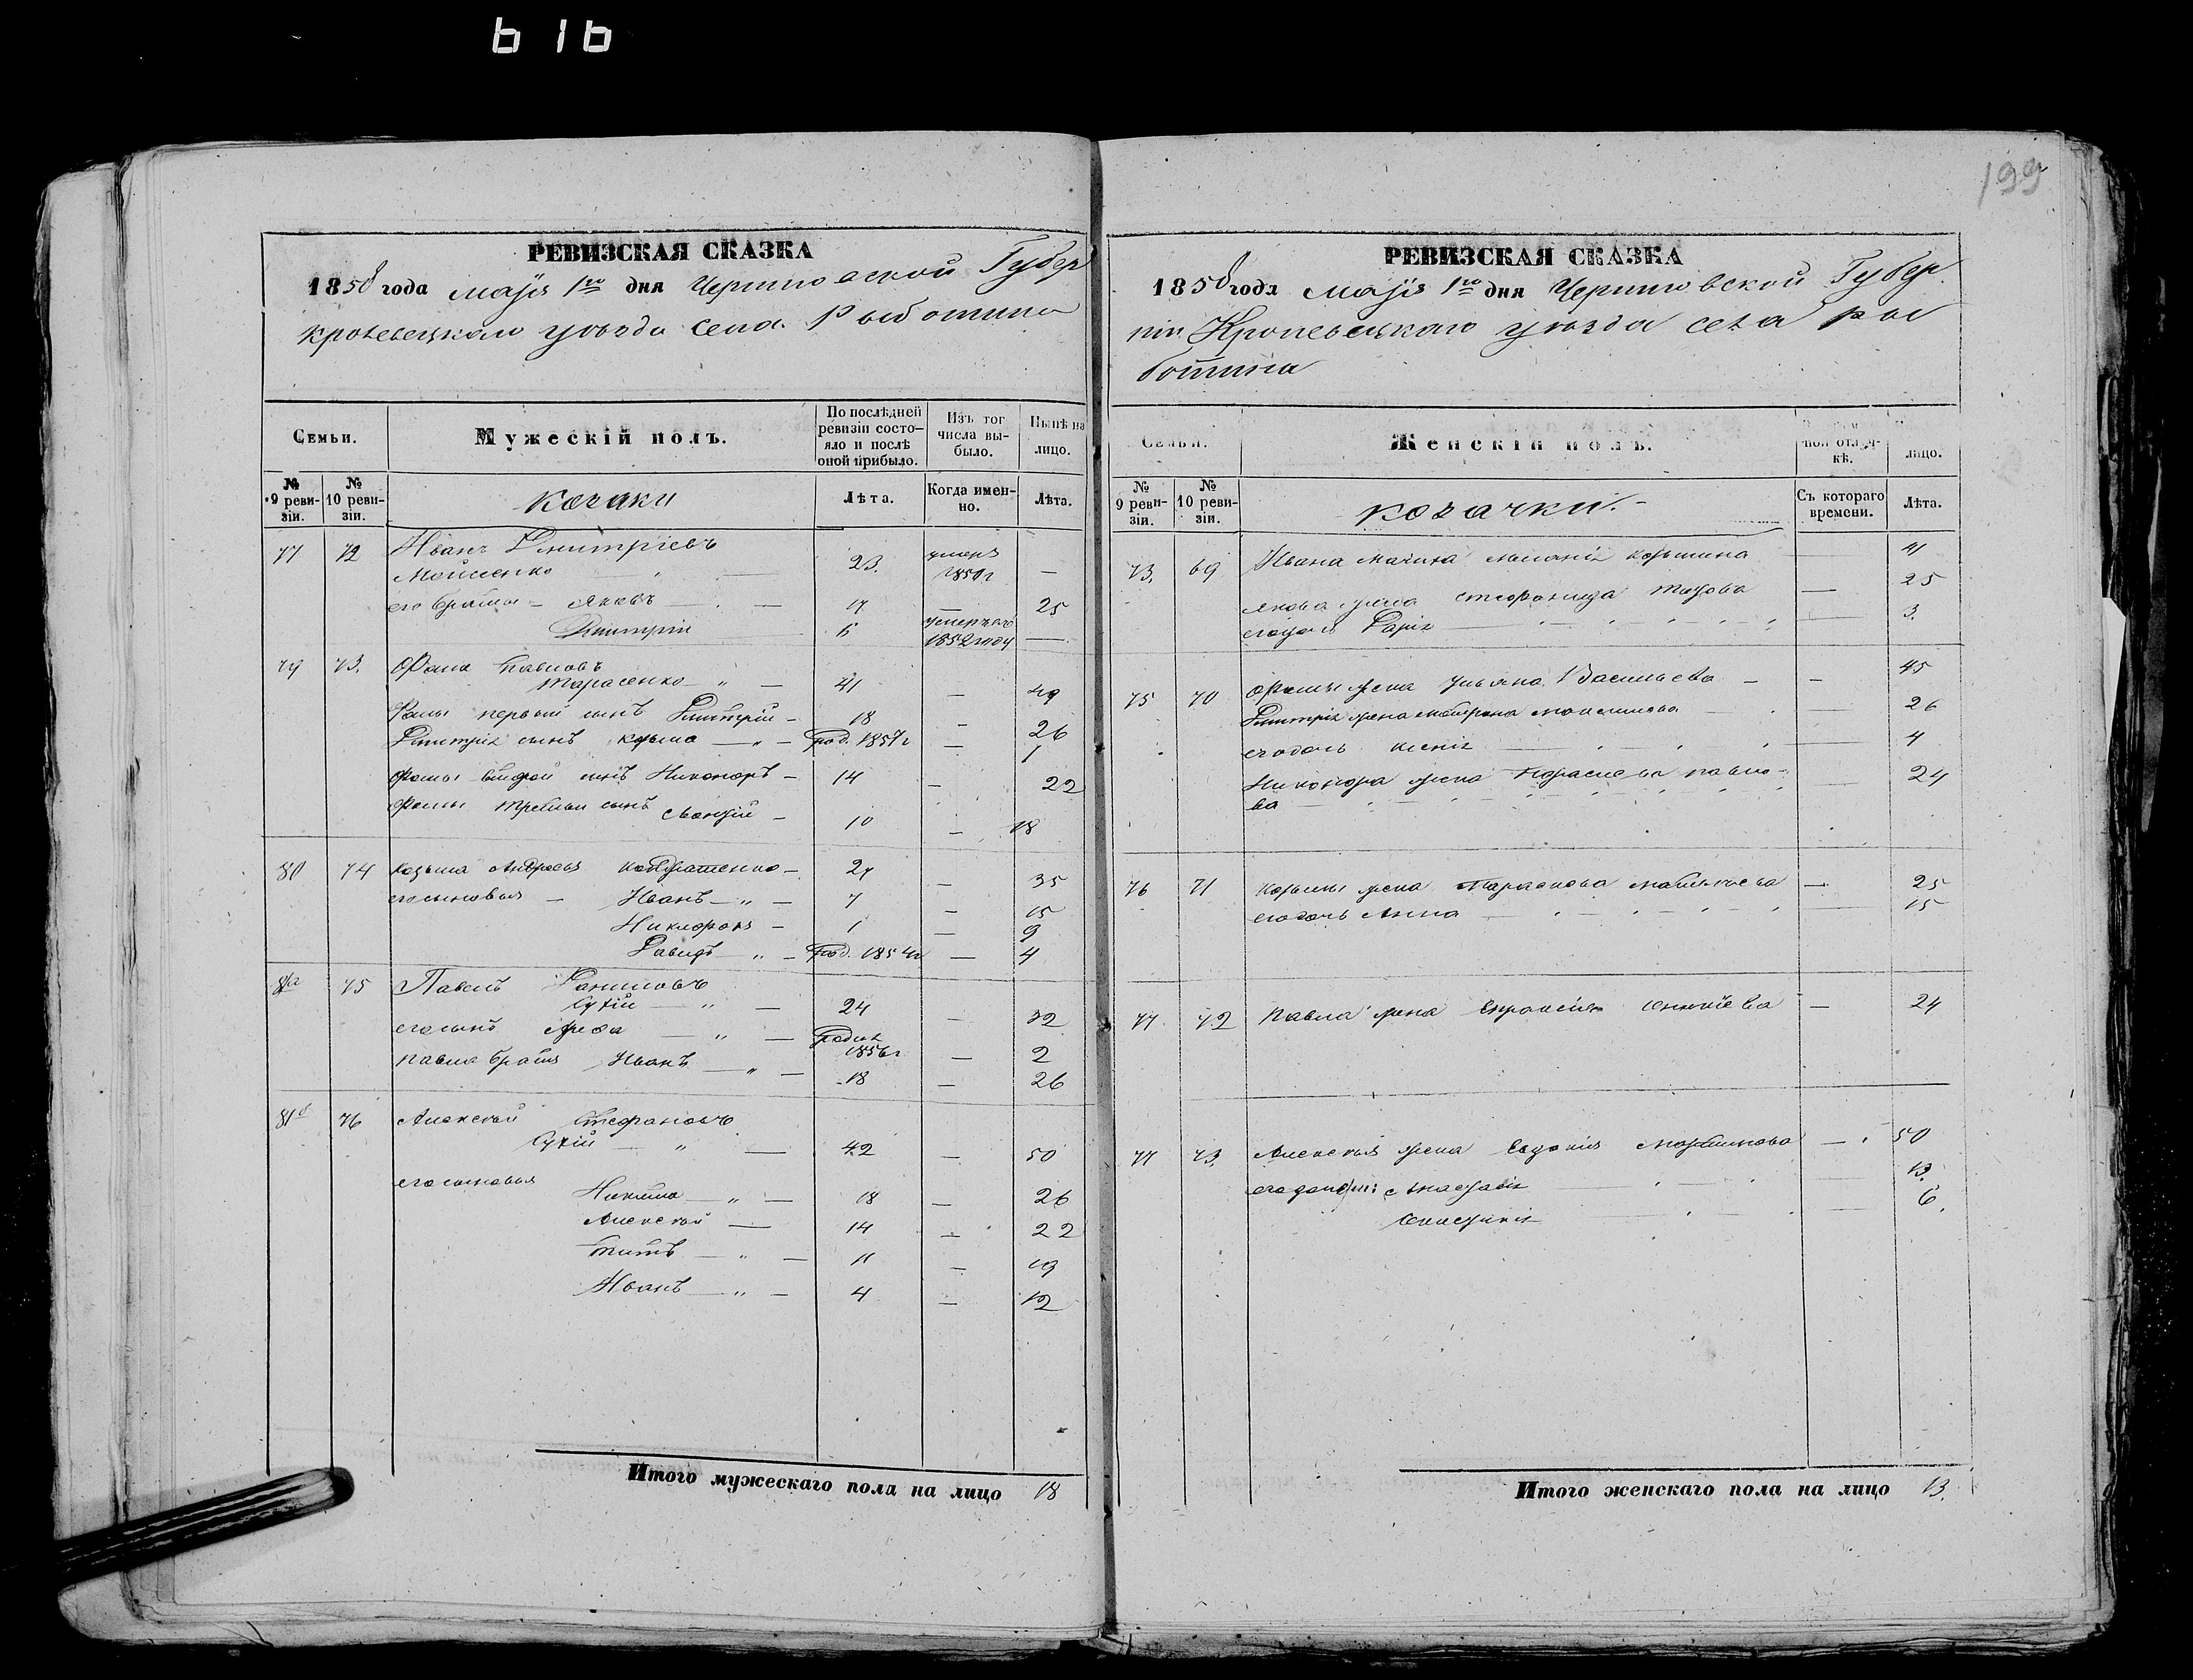 616
199
РЕВИЗСКАЯ СКАЗКА
1858 года маія 1го дня Черниговской Губер
кролевецкаго уѣзда села Рыботина
Семьи.
Мужескій полъ.
По послѣдней ревизіи состо-
яло и послѣ
оной прибыло.
Изъ тог
числа вы-
было.
Нынѣ на
лицо.
№
9 реви-
зіи.
№
10 реви-
зіи.
козаки
Лѣта.
Когда имен-
но.
Лѣта.
77 72 Иванъ Дмитріевъ
Мойсеенко 23. умеръ 1850 г —
его братья Яковъ 17 — 25
Дмитрій 6 умеръ въ 1852 году —
79 73. Фама Павловъ
Тарасенко 41 — 49
Фамы первый сынъ Дмитрій 18 — 26
Дмитрія сынъ Кузьма род. 1857 г — 1
Фомы второй сынъ Никоноръ 14 — 22
Фомы третьи сынъ 10 — 18
80 74 Козьма Андреевъ Кондратенко 27 — 35
его сыновья Иванъ 7 — 15
Никифоръ 1 — 9
Давидъ род. 1854 г — 4
81а 75 Павелъ Даниловъ
Сухій 24 — 32
его сынъ родился 1856 г — 2
Павла братъ Иванъ 18 — 26
81б 76 Алексѣй Стефановъ
Сухій 42 — 50
его сыновья
Никита 18 — 26
Алексѣй 14 — 22
Титъ 11 — 19
Иванъ 4 — 12
Итого мужескаго пола на лицо 18
РЕВИЗСКАЯ СКАЗКА
1858 года маія 1го дня Черниговской Губер
ніи Кролевецкаго уѣзда села Ры
ботина
Семьи.
Женскій полъ.
лицо.
№
9 реви-
зіи.
№
10 реви-
зіи.
козачки.
Съ котораго
времени.
Лѣта.
73. 69 Ивана мачиха Меланія Козьмина — 41
Якова жена Стефанида Титова — 25
его дочь Дарія — 3.
75 70 Фомы жена Ульяна Васильева — 45
Дмитрія жена Матрона Максимова — 26
его дочь Ксенія — 4
Никонора жена Параскева Павло-
ва — 24
76 71 Козьмы жена Параскева Матвѣева — 25
его дочь Анна — 15
77 72 Павла жена Евпраксія — 24
77 73. Алексѣя жена Евдокія Мартинова — 50
его дочери Анастасія 13
6.
Итого женскаго пола на лицо 13.